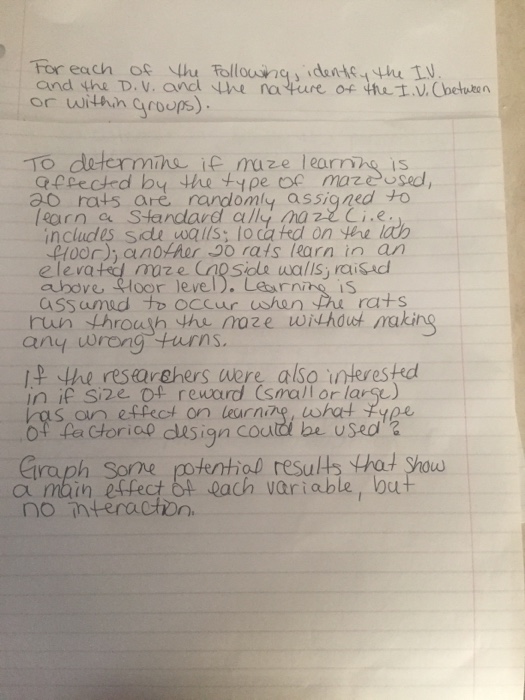 For each of the Following, identify the I.V.
and the D.V. and the nature of the I.V. (between
or within groups).
To determine if maze learning is
affected by the type of maze used,
20 rats are randomly assigned to
learn a standard ally maze (i.e.,
includes side walls; located on the lab
floor); another 20 rats learn in an
elevated maze (no side walls; raised
above floor level). Learning is
assumed to occur when the rats
run through the maze without making
any wrong turns.
If the researchers were also interested
in if size of reward (small or large)
has an effect on learning, what type
of factorial design could be used?
Graph some potential results that show
a main effect of each variable, but
no interaction.